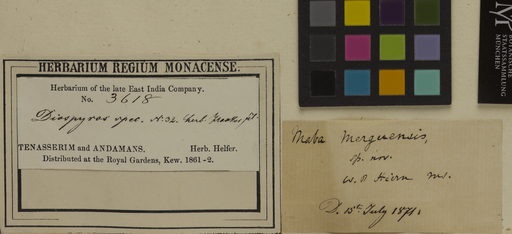 HERBARIUM REGIUM MONACENSE.
Herbarium of the late East India Company.
No. 3618
Diospyros spec. N. 32. herb.
TENASSERIM and ANDAMANS. Herb. Helfer.
Distributed at the Royal Gardens, Kew. 1861-2.
Maba Merguensis,
sp. nov.
W. P. Hiern ms.
D. 15th July 1871.
M
BOTANISCHE
STAATSSAMMLUNG
MÜNCHEN